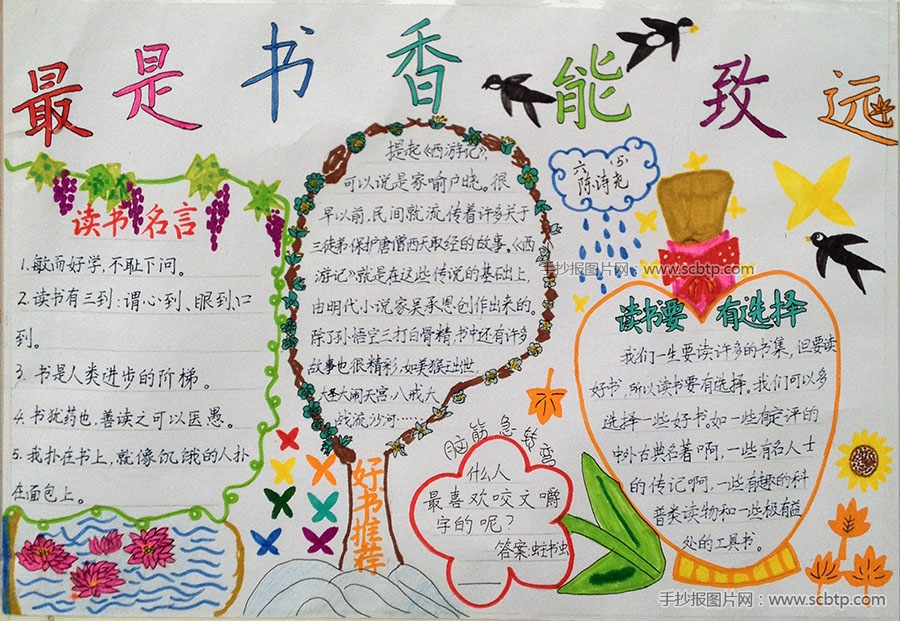 最是书香能致远
读书名言
1.敏而好学,不耻下问。
2.读书有三到:谓心到、眼到、口
到。
3.书是人类进步的阶梯。
4.书犹药也,善读之可以医愚。
5.我扑在书上,就像饥饿的人扑
在面包上。
提起《西游记》,
可以说是家喻户晓。很
早以前,民间就流传着许多关于
三徒弟保护唐僧西天取经的故事。《西
游记》就是在这些传说的基础上,
由明代小说家吴承恩创作出来的。
除了孙悟空三打白骨精,书中还有许多
故事也很精彩,如美猴王出世、
大圣大闹天宫、八戒大
战流沙河……
好书推荐
六(5)
陈诗尧
手抄报图片网:www.scbtp.com
脑筋急转弯
什么人
最喜欢咬文嚼
字的呢?
答案:蛀书虫
读书要有选择
我们一生要读许多的书集,但要读
好书,所以读书要有选择。我们可以多
选择一些好书。如一些有定评的
中外古典名著啊,一些有名人士
的传记啊,一些有趣的科
普类读物和一些极有益
处的工具书。
手抄报图片网:www.scbtp.com